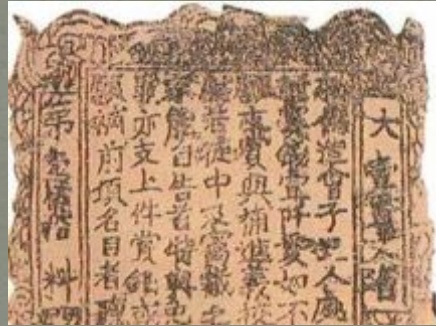 大壹貫文省
敕偽造會子犯人處
賞錢壹阡貫如不
支賞與補進義校
尉若徒中及窩藏之
家能自告首特與免
罪亦支上件賞錢或
願補前項名目者聽
第拾料